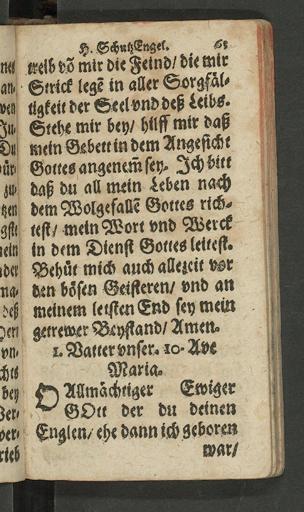 H. SchutzEngel. 65
treib võ mir die Feind/ die mir
Strick legẽ in aller Sorgfäl-
tigkeit der Seel vnd deß Leibs.
Stehe mir bey/ hilff mir daß
mein Gebett in dem Angesicht
Gottes angenem̃ sey. Ich bitt
daß du all mein Leben nach
dem Wolgefallẽ Gottes rich-
test/ mein Wort vnd Werck
in dem Dienst Gottes leitest.
Behüt mich auch allezeit vor
den bösen Geisteren/ vnd an
meinem letsten End sey mein
getrewer Beystand/ Amen.
1. Vatter vnser. 10. Ave
Maria.
O Allmächtiger Ewiger
GOtt der du deinen
Englen/ ehe dann ich geboren
war/